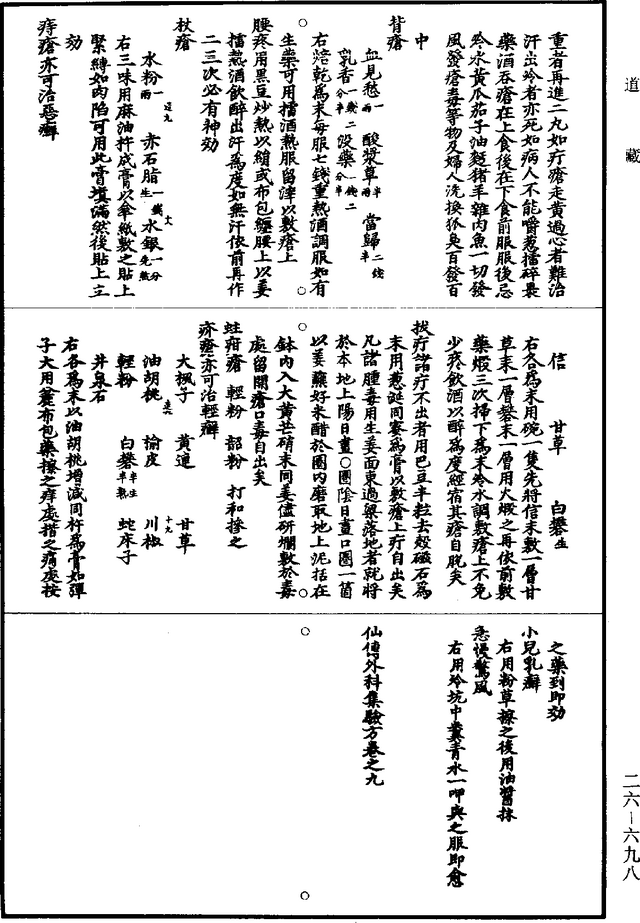 道藏
重者再進二丸如疔瘡走黃過心者難治
汗出冷者亦死如病人不能嚼葱擂碎裹
藥酒吞瘡在上食後在下食前服服後忌
冷水黃瓜茄子油麪猪羊雜肉魚一切發
風發瘡毒等物及婦人洗換狐臭百發百
中
背瘡
血見愁一兩 酸漿草半兩 當歸二錢半
乳香一錢二分半 沒藥一錢二分半
右焙乾爲末每服七錢重熱酒調服如有
生藥可用擂酒熱服留滓以敷瘡上
腰疼用黑豆炒熱以絹或布包纏腰上以姜
擂熱酒飲醉出汗爲度如無汗依前再作
二三次必有神効
杖瘡
水粉一兩 赤石脂一錢生 水銀一分
右三味用麻油杵成膏以傘紙敷之貼上
緊縛如肉陷可用此膏填滿然後貼上立
効
痔瘡亦可治惡癬
信 甘草 白礬生
右各爲末用碗一隻先將信末敷一層甘
草末一層礬末一層用火煅之再依前敷
藥煅三次掃下爲末冷水調敷瘡上不免
少疼飲酒以醉爲度經宿其瘡自脫矣
拔疔諸疔不出者用巴豆半粒去殼磁石爲
末用葱涎同蜜爲膏以敷瘡上疔自出矣
凡諸腫毒用生姜面東過與落地者就將
於本地上陽日畫〇圈陰日畫口圈一箇
以姜蘸好米醋於圈內磨取地上泥括在
鉢內入大黃芒硝末同姜儘研爛敷於毒
處留開瘡口毒自出矣
蛀疳瘡 輕粉 韶粉 打和摻之
疥瘡亦可治輕癬
大楓子 黃連 甘草
油胡桃 揄皮 川椒
輕粉 白礬半生半熟 蛇床子
井泉石
右各爲末以油胡桃增減同杵爲膏如彈
子大用麄布包藥擦之痒處揩之痛處按
之藥到即効
小兒乳癬
右用粉草擦之後用油醬抹
急慢驚風
右用冷坑中糞青水一呷與之服即愈
仙傳外科集驗方卷之九
二六—六九八